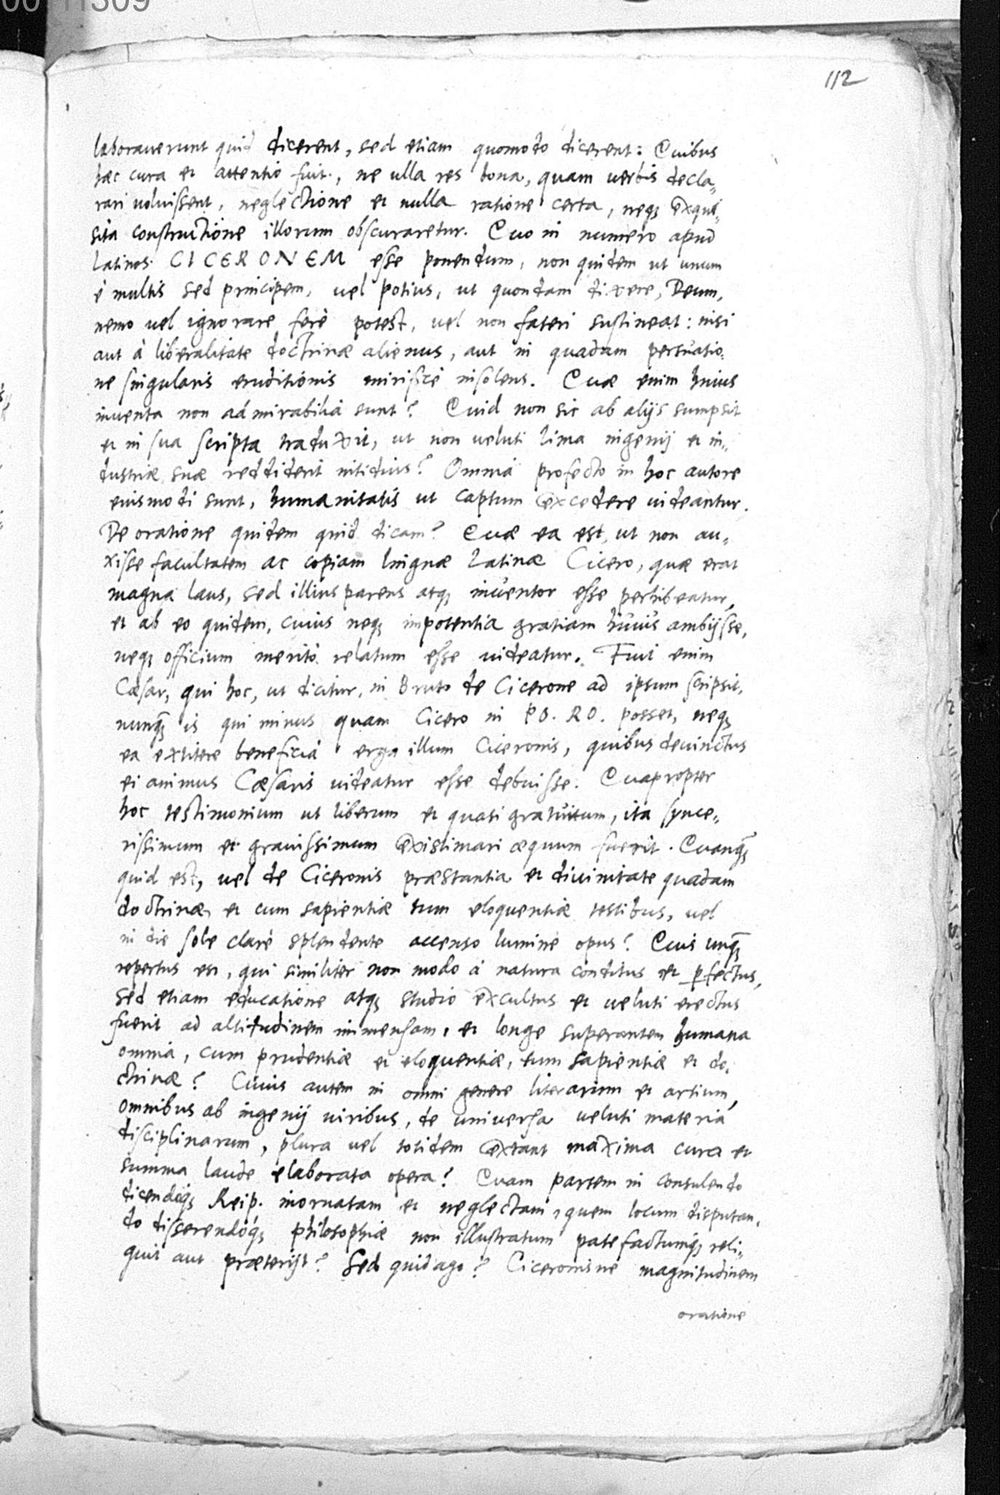 00011309
112
laborauerunt quid dicerent, sed etiam quomodo dicerent: Quibus
hæc cura et attentio fuit, ne ulla res bona, quam uerbis decla-
rari voluissent, neglectione et nulla ratione certa, neq; exqui-
sita constructione illorum obscuraretur. Quo in numero apud
Latinos CICERONEM esse ponendum, non quidem ut unum
è multis sed principem, uel potius, ut quondam dixere, Deum,
nemo uel ignorare ferè potest, uel non fateri sustineat: nisi
aut à liberalitate doctrinæ alienus, aut in quadam persuasio-
ne singularis eruditionis mirificè insolens. Quæ enim huius
inuenta non admirabilia sunt? Quid non sic ab alijs sumpsit
et in sua scripta traduxit, ut non ueluti lima ingenij et in-
dustriæ suæ reddiderit nitidius? Omnia profecto in hoc autore
eiusmodi sunt, humanitatis ut captum excedere uideantur.
De oratione quidem quid dicam? Quæ ea est, ut non au-
xisse facultatem ac copiam linguæ Latinæ Cicero, quæ erat
magna laus, sed illius parens atq; inuentor esse perhibeatur,
et ab eo quidem, cuius neq; impotentia gratiam huius ambijsse,
neq; officium meritò relatum esse uideatur. Fuit enim
Cæsar, qui hoc, ut dicitur, in Bruto de Cicerone ad ipsum scripsit,
nunq̃ is qui minus quam Cicero in PO. RO. posset, neq;
ea extitere beneficia erga illum Ciceronis, quibus deuinctus
ei animus Cæsaris uideatur esse debuisse. Quapropter
hoc testimonium ut liberum et quasi gratuitum, ita synce-
rissimum et grauissimum existimari æquum fuerit. Quanq̃
quid est, uel de Ciceronis præstantia et diuinitate quadam
doctrinæ et cum sapientiæ tum eloquentiæ testibus, uel
in die sole clarè splendente accenso lumine opus? Quis unq̃
repertus est, qui similiter non modo à natura conditus et p̱fectus,
sed etiam educatione atq; studio excultus et ueluti erectus
fuerit ad altitudinem immensam, et longe superantem humana
omnia, cum prudentiæ et eloquentiæ, tum sapientiæ et do-
ctrinæ? Cuius autem in omni genere literarum et artium,
omnibus ab ingenij uiribus, de uniuersa ueluti materia
disciplinarum, plura uel totidem extant maxima cura et
summa laude elaborata opera? Quam partem in consulendo
dicendoq; Reip. inornatam et neglectam, quem locum disputan-
do disserendoq; philosophiæ non illustratum patefactumq; reli-
quit aut præterijt? Sed quid ago? Ciceronisne magnitudinem
oratione